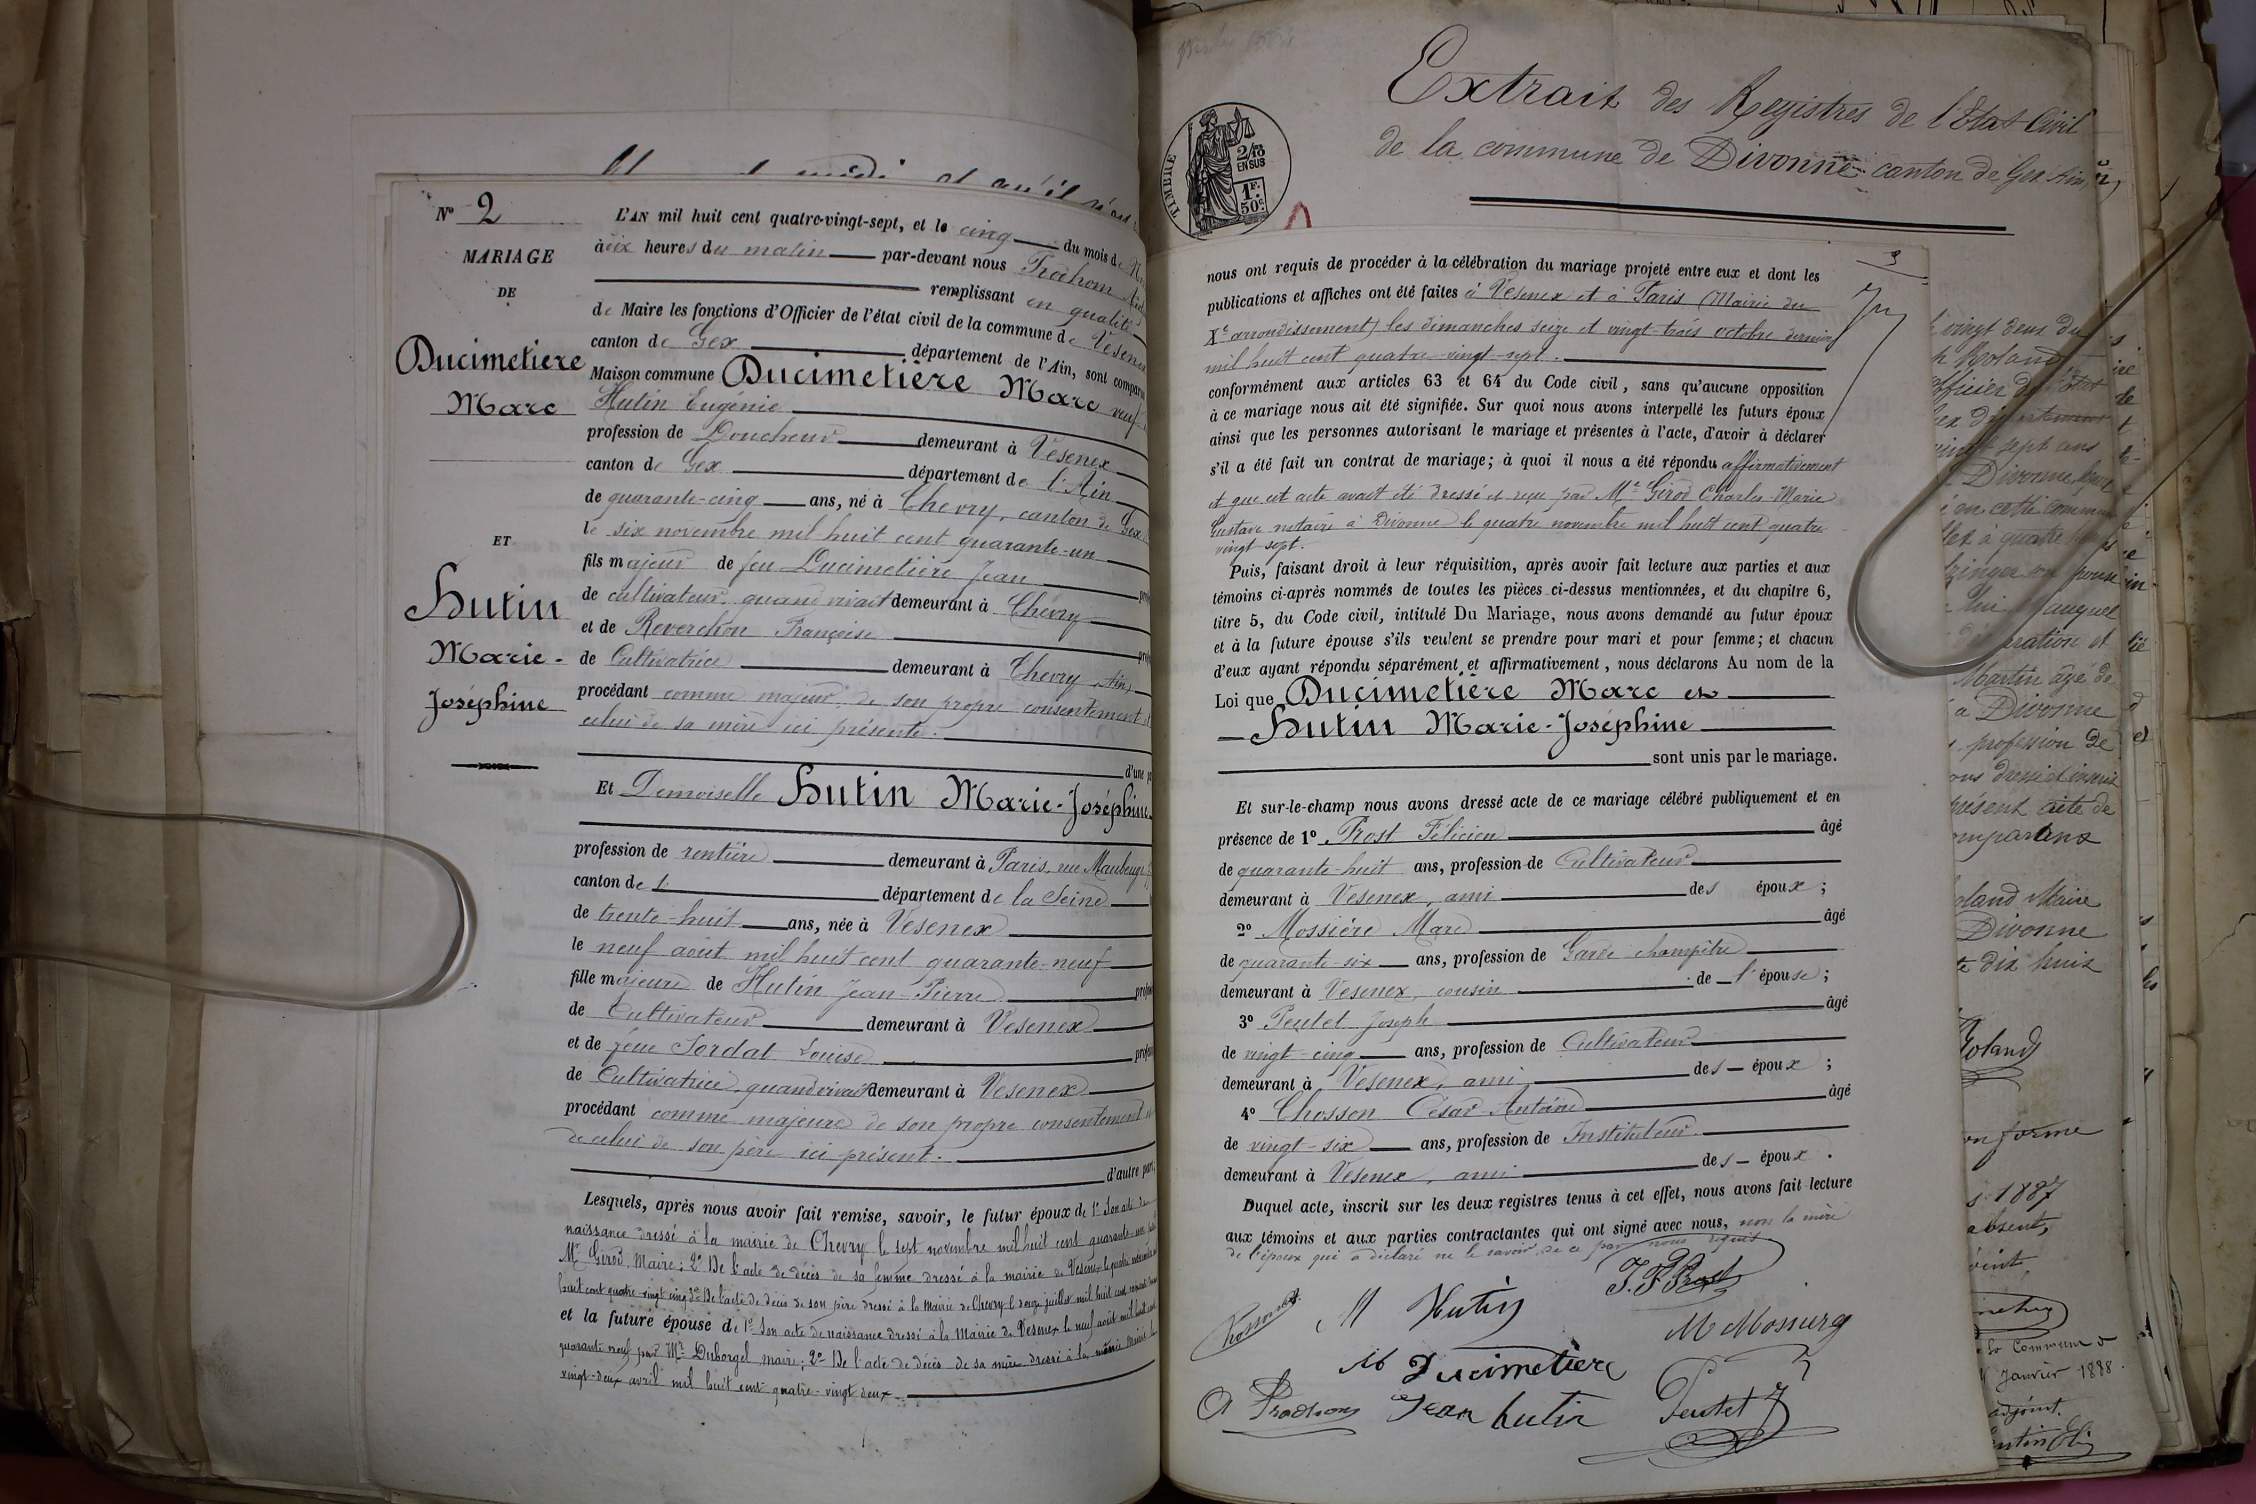 No 2
MARIAGE
DE
Ducimetiere
Marc
ET
Hutin
Marie-
Joséphine
L'AN mil huit cent quatre-vingt-sept, et le cinq du mois de
à dix heures du matin par-devant nous
remplissant en qualité
de Maire les fonctions d'Officier de l'état civil de la commune de Vesenex
canton de Gex département de l'Ain, sont comparus
Maison commune Ducimetière Marc veuf
Hutin Eugénie
profession de demeurant à Vesenex
canton de Gex département de l'Ain
de quarante-cinq ans, né à Chevry, canton de Gex
le six novembre mil huit cent quarante-un
fils majeur de feu Ducimetière Jean
de cultivateur quand vivait demeurant à Chevry
et de Reverchon Françoise
de Cultivatrice demeurant à Chevry (Ain)
procédant comme majeur de son propre consentement et
celui de sa mère ici présente.
d'une
Et Demoiselle Hutin Marie-Joséphine
profession de rentière demeurant à Paris, rue Maubeuge
canton de département de la Seine
de trente-huit ans, née à Vesenex
le neuf août mil huit cent quarante-neuf
fille majeure de Hutin Jean-Pierre
de Cultivateur demeurant à Vesenex
et de feue Sordat Louise
de Cultivatrice quand vivait demeurant à Vesenex
procédant comme majeure de son propre consentement
de celui de son père ici présent.
d'autre part;
Lesquels, après nous avoir fait remise, savoir, le futur époux de 1° Son acte de
naissance dressé à la mairie de Chevry le sept novembre mil huit cent quarante-un
Mr Girod, Maire; 2° De l'acte de décès de sa femme dressé à la mairie de Vesenex le quatre
huit cent quatre-vingt cinq 3° De l'acte de décès de son père dressé à la Mairie de Chevry le douze juillet mil huit cent
et la future épouse de 1° Son acte de naissance dressé à la Mairie de Vesenex le neuf août mil huit cent
quarante neuf par Mr Duborgel maire; 2° De l'acte de décès de sa mère dressé à la même Mairie le
vingt-deux avril mil huit cent quatre-vingt deux.
Extrait des Registres de l'Etat Civil
de la commune de Divonne canton de Gex Ain
TIMBRE
2/10
EN SUS
1F.
50c.
3
nous ont requis de procéder à la célébration du mariage projeté entre eux et dont les
publications et affiches ont été faites à Vesenex et à Paris (Mairie du
Xe arrondissement) les dimanches seize et vingt-trois octobre dernier
mil huit cent quatre-vingt-sept.
conformément aux articles 63 et 64 du Code civil, sans qu'aucune opposition
à ce mariage nous ait été signifiée. Sur quoi nous avons interpellé les futurs époux
ainsi que les personnes autorisant le mariage et présentes à l'acte, d'avoir à déclarer
s'il a été fait un contrat de mariage; à quoi il nous a été répondu affirmativement
et que cet acte avait été dressé et reçu par Me Girod Charles-Marie
Gustave notaire à Divonne le quatre novembre mil huit cent quatre
vingt sept.
Puis, faisant droit à leur réquisition, après avoir fait lecture aux parties et aux
témoins ci-après nommés de toutes les pièces ci-dessus mentionnées, et du chapitre 6,
titre 5, du Code civil, intitulé Du Mariage, nous avons demandé au futur époux
et à la future épouse s'ils veulent se prendre pour mari et pour femme; et chacun
d'eux ayant répondu séparément et affirmativement, nous déclarons Au nom de la
Loi que Ducimetière Marc et
Hutin Marie-Joséphine
sont unis par le mariage.
Et sur-le-champ nous avons dressé acte de ce mariage célébré publiquement et en
présence de 1° Prost Félicien âgé
de quarante-huit ans, profession de Cultivateur
demeurant à Vesenex, ami des époux;
2° Mossière Marc âgé
de quarante-six ans, profession de Garde champêtre
demeurant à Vesenex, cousin de l'épouse;
3° Peutet Joseph âgé
de vingt-cinq ans, profession de Cultivateur
demeurant à Vesenex, ami des époux;
4° Chosson César-Antoine âgé
de vingt-six ans, profession de Instituteur
demeurant à Vesenex, ami des époux.
Duquel acte, inscrit sur les deux registres tenus à cet effet, nous avons fait lecture
aux témoins et aux parties contractantes qui ont signé avec nous, non la mère
de l'époux qui a déclaré ne le savoir de ce par nous requis
J. F. Prost
M Hutin
M Ducimetière
Jean hutin
Peutet J
vingt deux du
Roland
officier de l'état
sept ans
Divonne
en cette commune
à quatre
auquel
Martin agé de
a Divonne
profession de
présent acte de
Maire
Divonne
dix huit
Roland
conforme
1887
absent,
Janvier 1888.
adjoint.